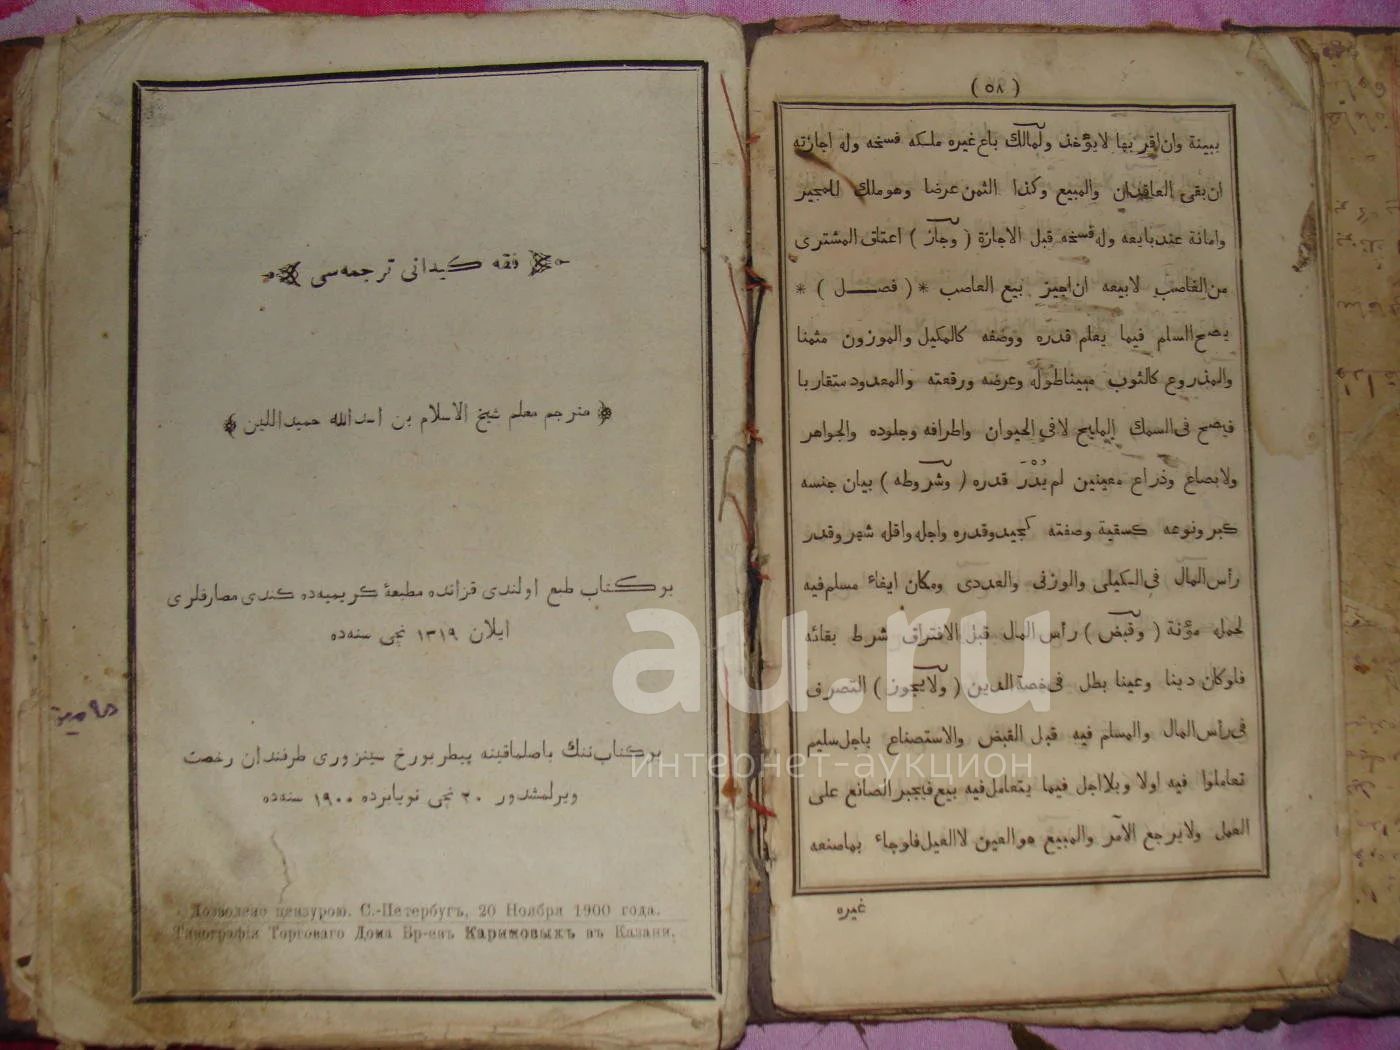 فقه كيدانى ترجمه‌سى
مترجم معلم شيخ الاسلام بن اسدالله حميداللين
بو كتاب طبع اولندى قزانده مطبعهٔ كريميه‌ده كندى مصارفلرى
ايلان ١٣١٩ نجى سنه‌ده
بو كتاب‌ننك باصلماقينه پيطربورخ سينزورى طرفندان رخصت
ويرلمشدور ٢٠ نجى نويابرده ١٩٠٠ سنه‌ده
Дозволено цензурою. С.-Петербугъ, 20 Ноября 1900 года.
Типографія Торговаго Дома Бр-евъ Каримовыхъ въ Казани.
( ٥٨ )
ببينة وان اقر بها لا يؤخذ ولمالك باع غيره ملكه فسخه وله اجازته
ان بقى العاقدان والمبيع وكذا الثمن عرضا وهو ملك للمجيز
وامانة عند بايعه وله فسخه قبل الاجازة ( وجاز ) اعتاق المشترى
من الغاصب لا بيعه ان اجيز بيع الغاصب * ( فصــل ) *
يصح السلم فيما يعلم قدره ووصفه كالمكيل والموزون مثمنا
والمذروع كالثوب مبينا طوله وعرضه ورقعته والمعدود متقاربا
فيصح فى السمك المليح لا فى الحيوان واطرافه وجلوده والجواهر
ولا بصاع وذراع معينين لم يُدْرَ قدره ( وشروطه ) بيان جنسه
كبر ونوعه كسقية وصفته كجيد وقدره واجله واقله شهر وقدر
رأس المال فى الكيلى والوزنى والعددى ومكان ايفاء مسلم فيه
لحمله مؤنة ( وقبض ) رأس المال قبل الافتراق شرط بقائه
فلو كان دينا وعينا بطل فى حصة الدين ( ولا يجوز ) التصرف
فى رأس المال والمسلم فيه قبل القبض والاستصناع باجل سليم
تعاملوا فيه اولا وبلا اجل فيما يتعامل فيه بيع فيجبر الصانع على
العمل ولا يرجع الآمر والمبيع هو العين لا العمل فلو جاء بما صنعه
غيره
au.ru
интернет-аукцион